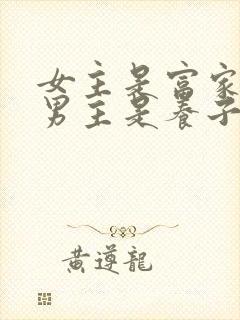 女主是富家
男主是養子
黃遵龍